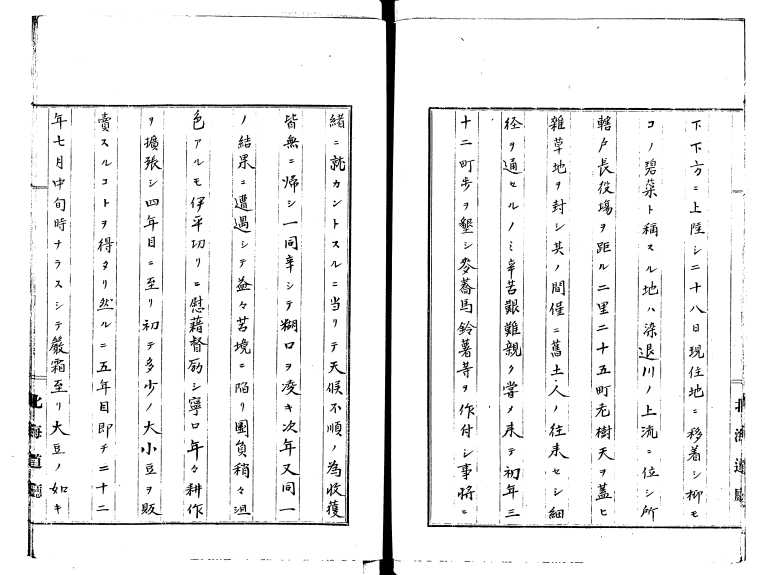 下下方ニ上陸シ二十八日現住地ニ移着シ抑モ
コノ碧蘂ト稱スル地ハ染退川ノ上流ニ位シ所
轄戸長役場ヲ距ル二里二十五町老樹天ヲ蓋ヒ
雑草地ヲ封シ其ノ間僅ニ舊土人ノ往来セシ細
径ヲ通セルノミ辛苦艱難親ク嘗メ来テ初年三
十二町歩ヲ墾シ麥蕎馬鈴薯等ヲ作付シ事将ニ
緒ニ就カントスルニ当リテ天候不順ノ為收獲
皆無ニ帰シ一同辛シテ糊口ヲ凌キ次年又同一
ノ結果ニ遭遇シテ益々苦境ニ陥リ團負稍々沮
色アルモ伊平切リニ慰藉督励シ寧ロ年々耕作
ヲ擴張シ四年目ニ至リ初テ多少ノ大小豆ヲ販
賣スルコトヲ得タリ然ルニ五年目即チ二十二
年七月中旬時ナラスシテ嚴霜至リ大豆ノ如キ
北海道廳
北海道廳